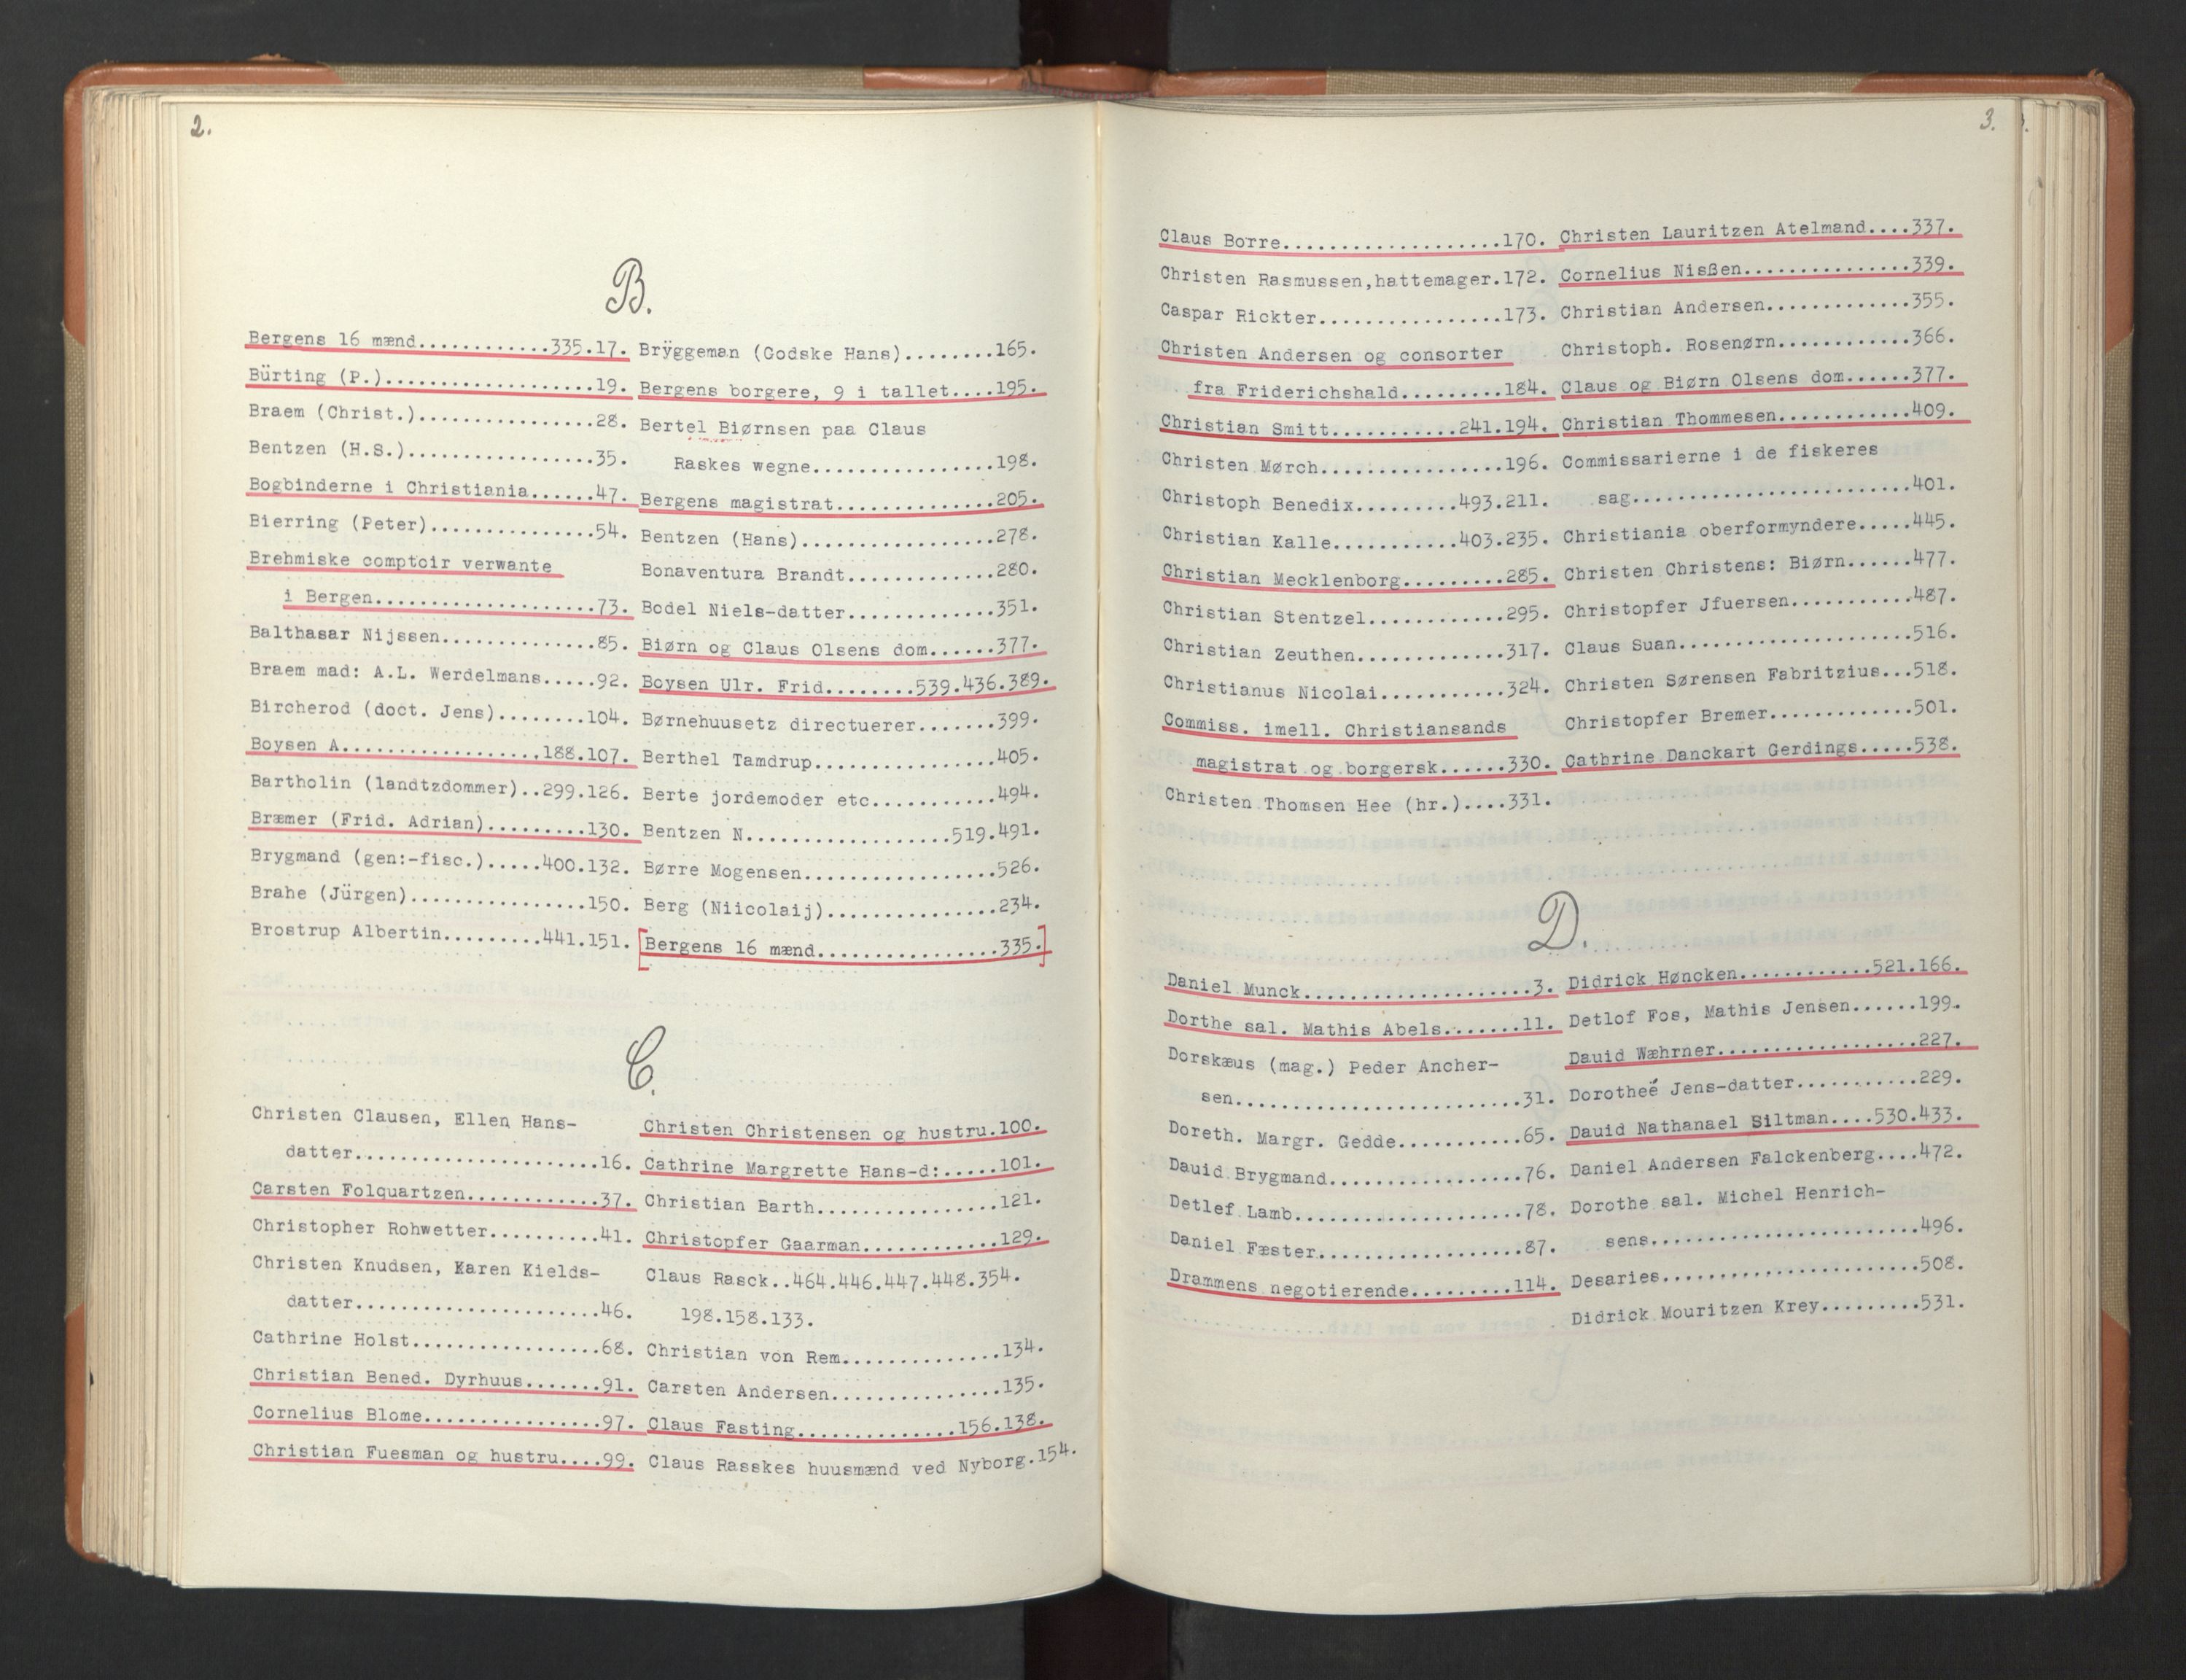 2.
B.
Bergens 16 mænd............335.17.
Bürting (P.)...................19.
Braem (Christ.)................28.
Bentzen (H.S.).................35.
Bogbinderne i Christiania......47.
Bierring (Peter)...............54.
Brehmiske comptoir verwante
i Bergen....................73.
Balthasar Nijssen..............85.
Braem mad: A.L. Werdelmans.....92.
Bircherod (doct. Jens)........104.
Boysen A..................188.107.
Bartholin (landtzdommer)..299.126.
Bræmer (Frid. Adrian).........130.
Brygmand (gen:-fisc.).....400.132.
Brahe (Jürgen)................150.
Brostrup Albertin.........441.151.
Brÿggeman (Godske Hans)........165.
Bergens borgere, 9 i tallet....195.
Bertel Biørnsen paa Claus
Raskes wegne................198.
Bergens magistrat..............205.
Bentzen (Hans).................278.
Bonaventura Brandt.............280.
Bodel Niels-datter.............351.
Biørn og Claus Olsens dom......377.
Boysen Ulr. Frid........539.436.389.
Børnehuusetz directuerer.......399.
Berthel Tamdrup................405.
Berte jordemoder etc...........494.
Bentzen N..................519.491.
Børre Mogensen.................526.
Berg (Niicolaij)...............234.
[Bergens 16 mænd................335.]
C.
Christen Clausen, Ellen Hans-
datter......................16.
Carsten Folquartzen............37.
Christopher Rohwetter..........41.
Christen Knudsen, Karen Kields-
datter......................46.
Cathrine Holst.................68.
Christian Bened. Dyrhuus.......91.
Cornelius Blome................97.
Christian Fuesman og hustru....99.
Christen Christensen og hustru.100.
Cathrine Margrette Hans-d:.....101.
Christian Barth................121.
Christopfer Gaarman............129.
Claus Rasck..464.446.447.448.354.
198.158.133.
Christian von Rem..............134.
Carsten Andersen...............135.
Claus Fasting..............156.138.
Claus Rasskes huusmænd ved Nyborg.154.
3.
Claus Borre...................170.
Christen Rasmussen,hattemager.172.
Caspar Rickter................173.
Christen Andersen og consorter
fra Friderichshald.........184.
Christian Smitt...........241.194.
Christen Mørch................196.
Christoph Benedix.........493.211.
Christian Kalle...........403.235.
Christian Mecklenborg.........285.
Christian Stentzel............295.
Christian Zeuthen.............317.
Christianus Nicolai...........324.
Commiss. imell. Christiansands
magistrat og borgersk......330.
Christen Thomsen Hee (hr.)....331.
Christen Lauritzen Atelmand....337.
Cornelius Nisßen...............339.
Christian Andersen.............355.
Christoph. Rosenørn............366.
Claus og Biørn Olsens dom......377.
Christian Thommesen............409.
Commissarierne i de fiskeres
sag.........................401.
Christiania oberformyndere.....445.
Christen Christens: Biørn......477.
Christopfer Jfuersen...........487.
Claus Suan.....................516.
Christen Sørensen Fabritzius...518.
Christopfer Bremer.............501.
Cathrine Danckart Gerdings.....538.
D.
Daniel Munck.....................3.
Dorthe sal. Mathis Abels.......11.
Dorskæus (mag.) Peder Ancher-
sen..........................31.
Doreth. Margr. Gedde...........65.
Dauid Brygmand.................76.
Detlef Lamb....................78.
Daniel Fæster..................87.
Drammens negotierende.........114.
Didrick Høncken............521.166.
Detlof Fos, Mathis Jensen......199.
Dauid Wæhrner..................227.
Dorotheé Jens-datter...........229.
Dauid Nathanael Siltman....530.433.
Daniel Andersen Falckenberg....472.
Dorothe sal. Michel Henrich-
sens........................496.
Desaries.......................508.
Didrick Mouritzen Krey.........531.